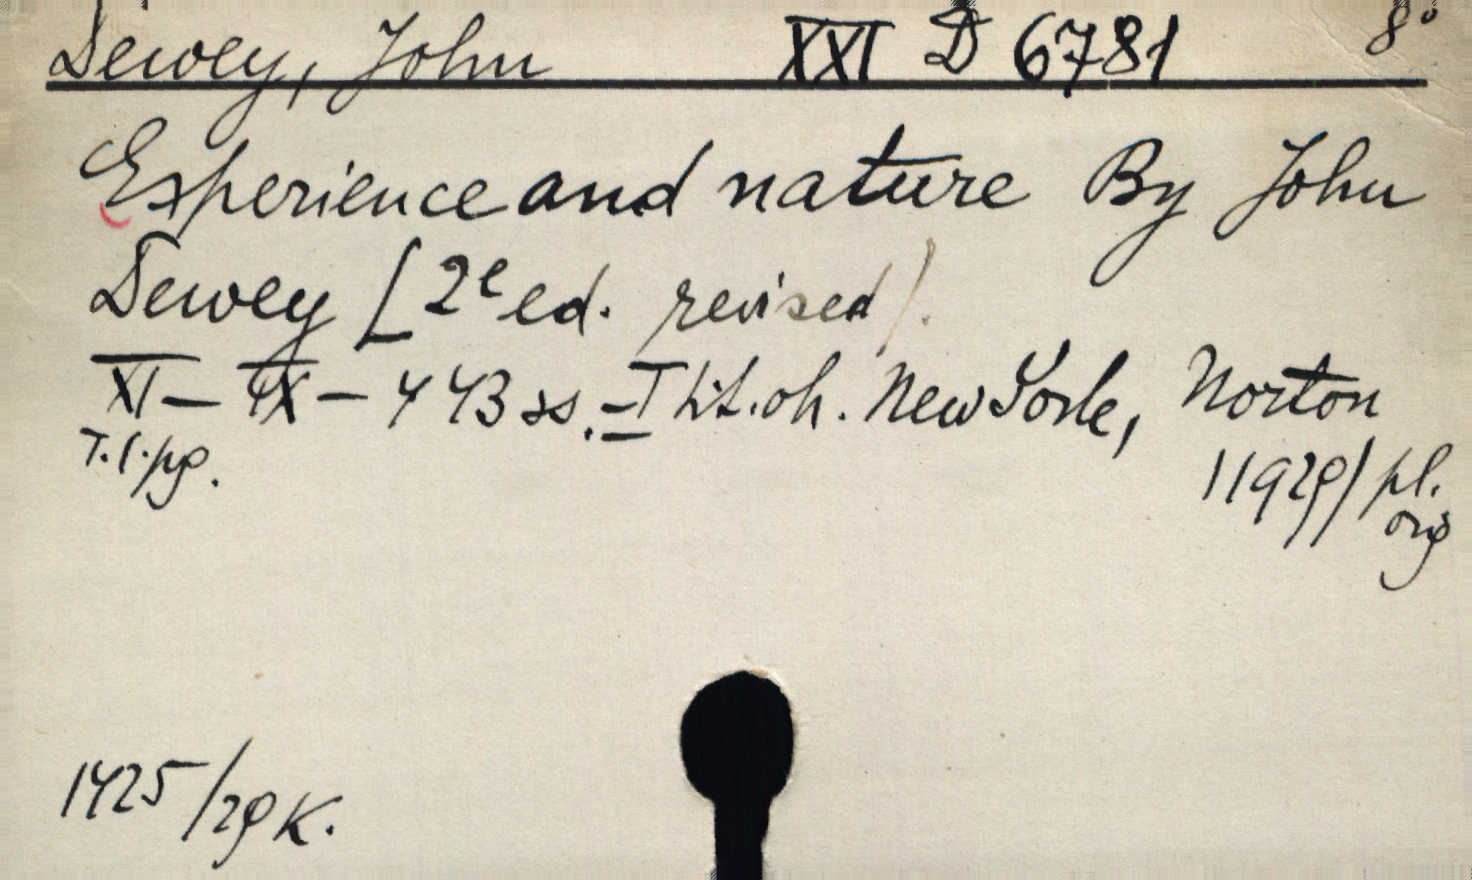 Dewey, John XXI D 6781 8°
Experience and nature By John
Dewey [2e ed. revised].
XI – IX – 443 ss. – I lit. oh. New York, Norton
T. I. pg. /1929/ pl.
org
1425/29 K.